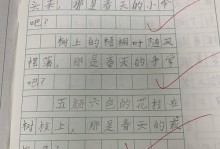 头来，那是春天的小
吧？
树上的梧桐叶随风
摆荡，那是春天的手
吧？
五颜六色的花衬在
树枝上，那是春天的